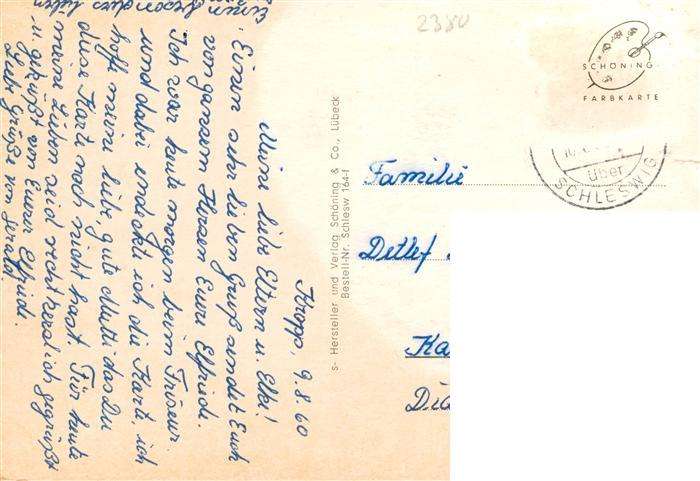 Kropp, 9.8.60
Meine liebe Eltern u. Elke!
Einen sehr lieben Gruß sendet Euch
von ganzem Herzen Eure Elfriede.
Ich war heute morgen beim Friseur
und dabei endeckte ich die Karte, ich
hoff meine liebe gute Mutti das Du
diese Karte noch nicht hast. Für heute
meine Lieben seid recht herzlich gegrüßt
u. geküßt von Eurer Elfriede.
Liebe Grüße von Gerald.
Einen besonders lieben
s- Hersteller und Verlag Schöning & Co., Lübeck
Bestell-Nr. Schlesw 164-I
2380
SCHÖNING
FARBKARTE
über
SCHLESWIG
Familie
Detlef
Ka